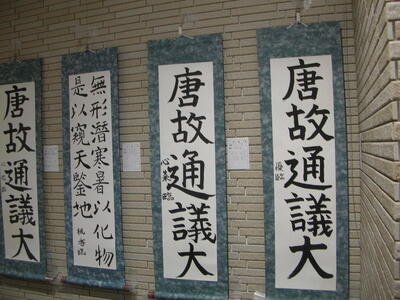 唐故通議大
優臨
唐故通議大
臨
無形潛寒暑以化物
是以窺天鑒地
臨
唐故通議大